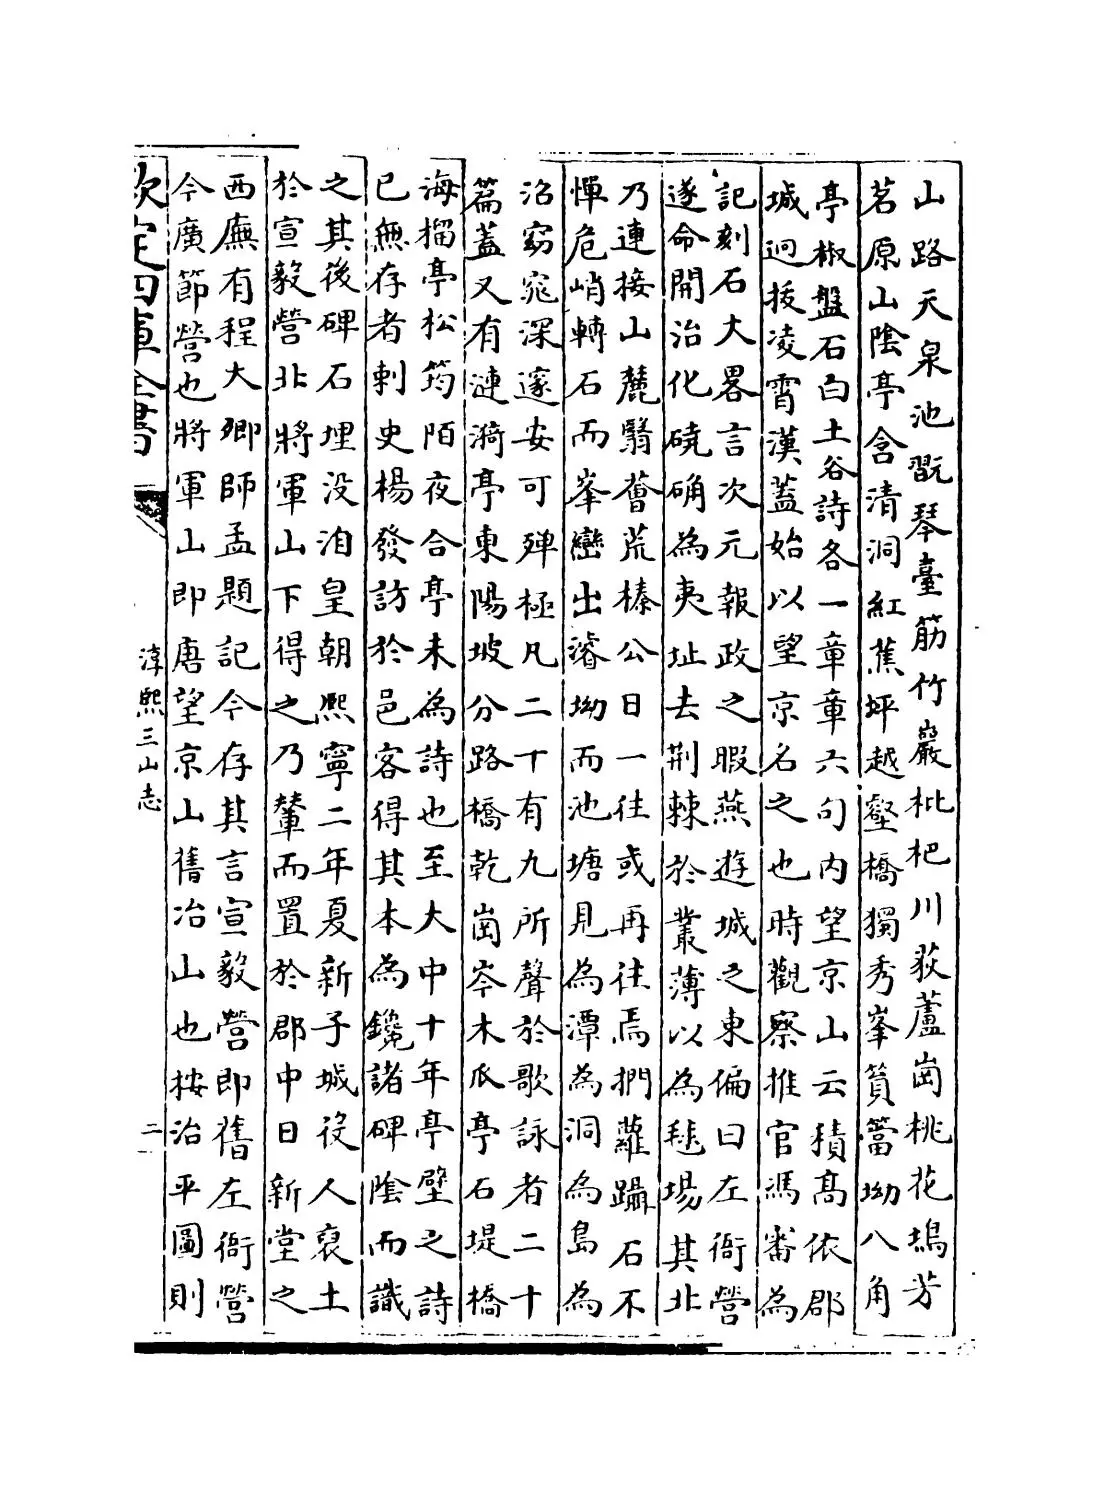 山路天泉池翫琴臺筋竹巖枇杷川荻蘆崗桃花塢芳
茗原山陰亭含清洞紅蕉坪越壑橋獨秀峯篔簹坳八角
亭椒盤石白土谷詩各一章章六句内望京山云積髙依郡
城迥拔凌霄漢蓋始以望京名之也時觀察推官馮審為
記刻石大畧言次元報政之暇燕遊城之東偏曰左衙營
遂命開治化磽确為夷址去荆棘於叢薄以為毬場其北
乃連接山麓翳薈荒榛公日一往或再往焉捫蘿躡石不
憚危峭轉石而峯巒出濬坳而池塘見為潭為洞為島為
沼窈窕深邃安可殫極凡二十有九所聲於歌詠者二十
篇蓋又有漣漪亭東陽坡分路橋乾崗岑木瓜亭石堤橋
海榴亭松筠陌夜合亭未為詩也至大中十年亭壁之詩
已無存者刺史楊發訪於邑客得其本為鑱諸碑隂而識
之其後碑石埋没洎皇朝熙寧二年夏新子城役人裒土
於宣毅營北將軍山下得之乃輦而置於郡中日新堂之
西廡有程大卿師孟題記今存其言宣毅營即舊左衙營
今廣節營也將軍山即唐望京山舊冶山也按治平圖則
欽定四庫全書
淳熙三山志
二